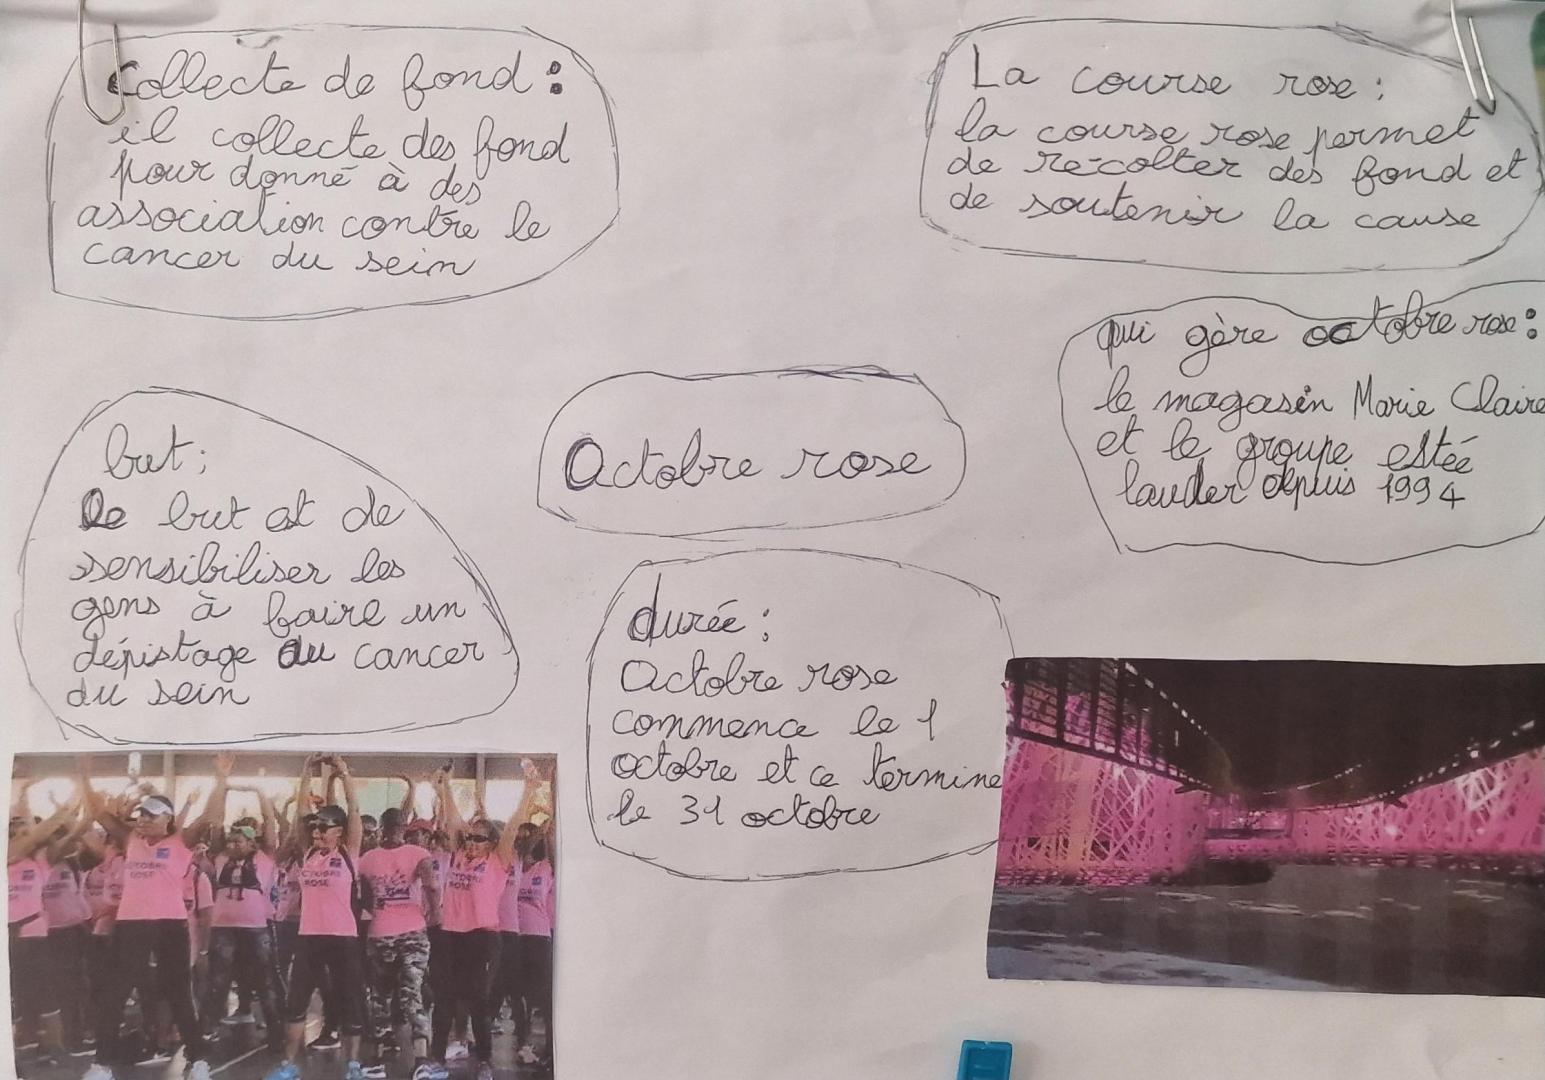 Collecte de fond :
il collecte des fond
pour donné à des
association contre le
cancer du sein
La course rose :
la course rose permet
de récolter des fond et
de soutenir la cause
qui gère octobre rose :
le magasin Marie Claire
et le groupe estée
lauder depuis 1994
Octobre rose
but ;
Le but est de
sensibiliser les
gens à faire un
dépistage du cancer
du sein
durée :
Octobre rose
commence le 1
octobre et ce termine
le 31 octobre
OCTOBRE
ROSE